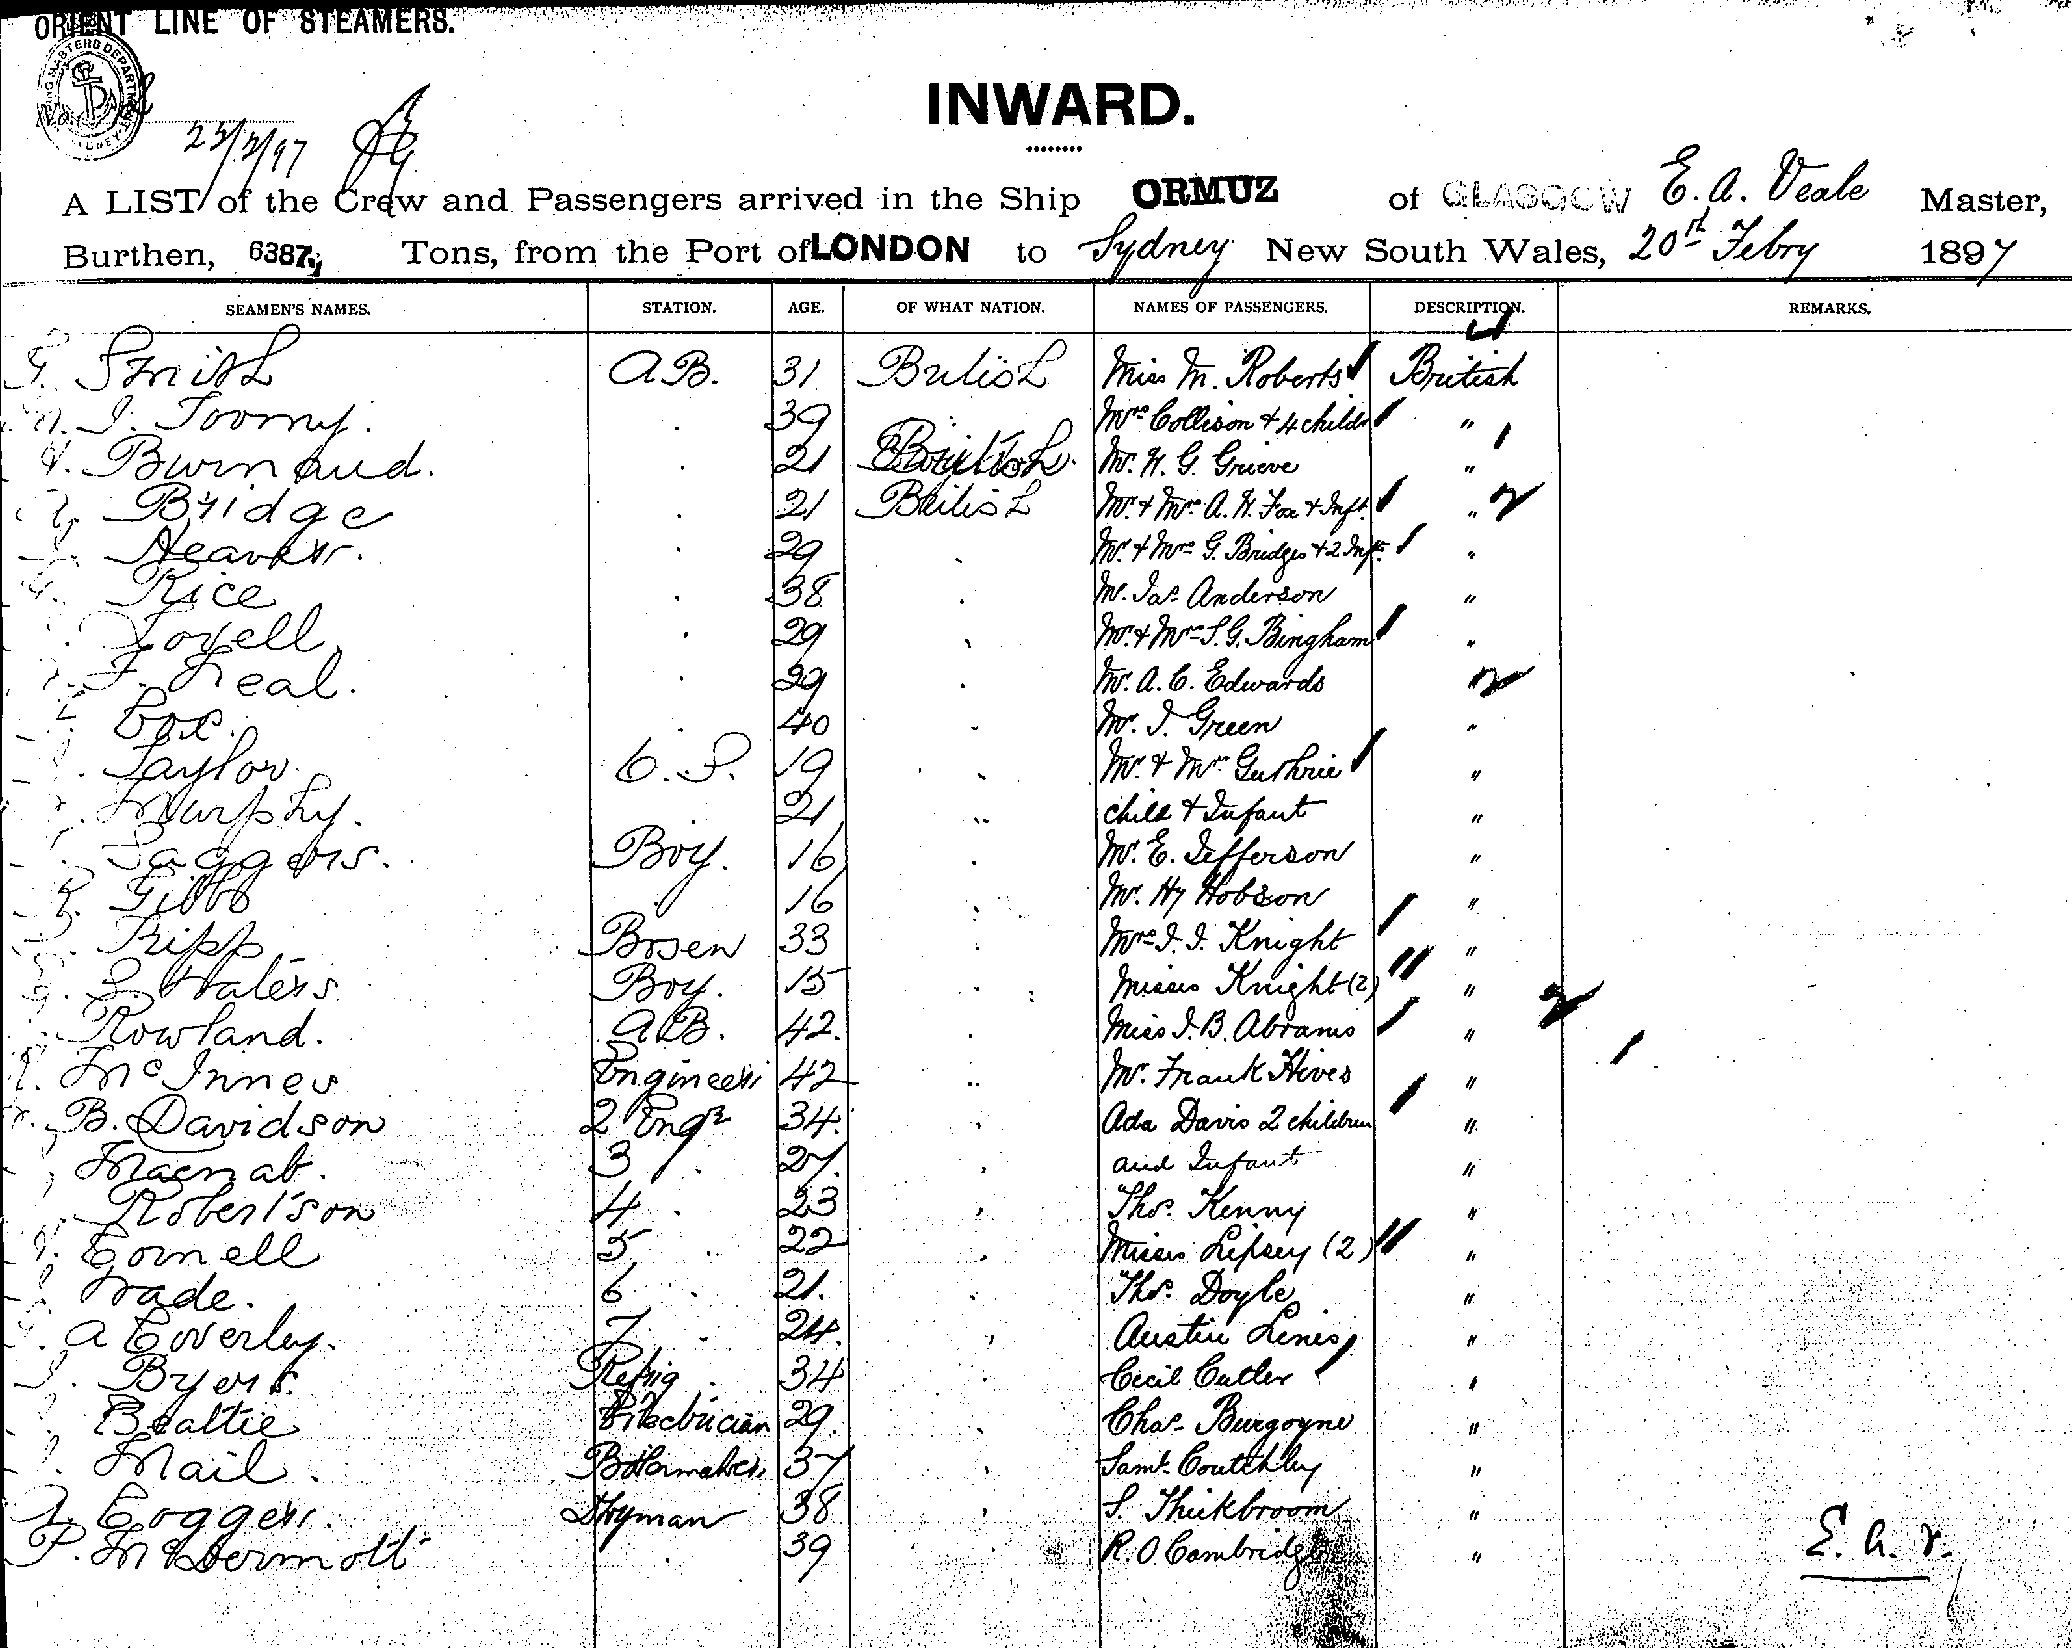 ORIENT LINE OF STEAMERS.
INWARD.
A LIST of the Crew and Passengers arrived in the Ship ORMUZ of GLASGOW E. A. Veale Master,
Burthen, 6387 Tons, from the Port of LONDON to Sydney New South Wales, 20th Febry 1897
SEAMEN'S NAMES. STATION. AGE. OF WHAT NATION. NAMES OF PASSENGERS. DESCRIPTION. REMARKS.
Smith A.B. 31 British Miss M. Roberts British
J. Toomy. 39 Mrs Collison & 4 childn "
21 British Mr. H. G. Grieve "
Bridge 21 British Mr. & Mrs A. H. Fox & Inft. "
29 Mr. & Mrs G. Bridges & 2 Inft. "
Rice 38 Mr. Jas. Anderson "
Lovell 29 Mr. & Mrs S. G. Bingham "
F. Neal. 29 Mr. A. C. Edwards
Cox. 40 Mr. J. Green "
Taylor. O.S. 19 Mr. & Mrs Guthrie "
Murphy. 21 child & Infant "
Saggers. Boy. 16 Mr. E. Jefferson "
Gibbs 16 Mr. Hy Hobson "
Tripp Bosen 33 Mrs J. J. Knight "
S. Waters Boy. 15 Misses Knight (2) "
Rowland. A.B. 42. Miss J. B. Abrams "
McInnes Engineer 42 Mr. Frank Hives "
B. Davidson 2 Engr 34. Ada Davis 2 children "
Macnab. 3 27. and Infant "
Robertson 4 23 Thos. Kenny "
Cornell 5 22 Misses Lipsey (2) "
Wade. 6 21. Thos. Doyle "
A Coverley. 7 24. Austin "
Byers. Refrig 34 Cecil Cutler "
Beattie Electrician 29. Chas. Burgoyne "
Mail. Boilermaker. 37 Saml. Coutchley "
Coggers. 38 S. Thickbroom "
P. McDermott 39 R. O Cambridge "
E. A. V.